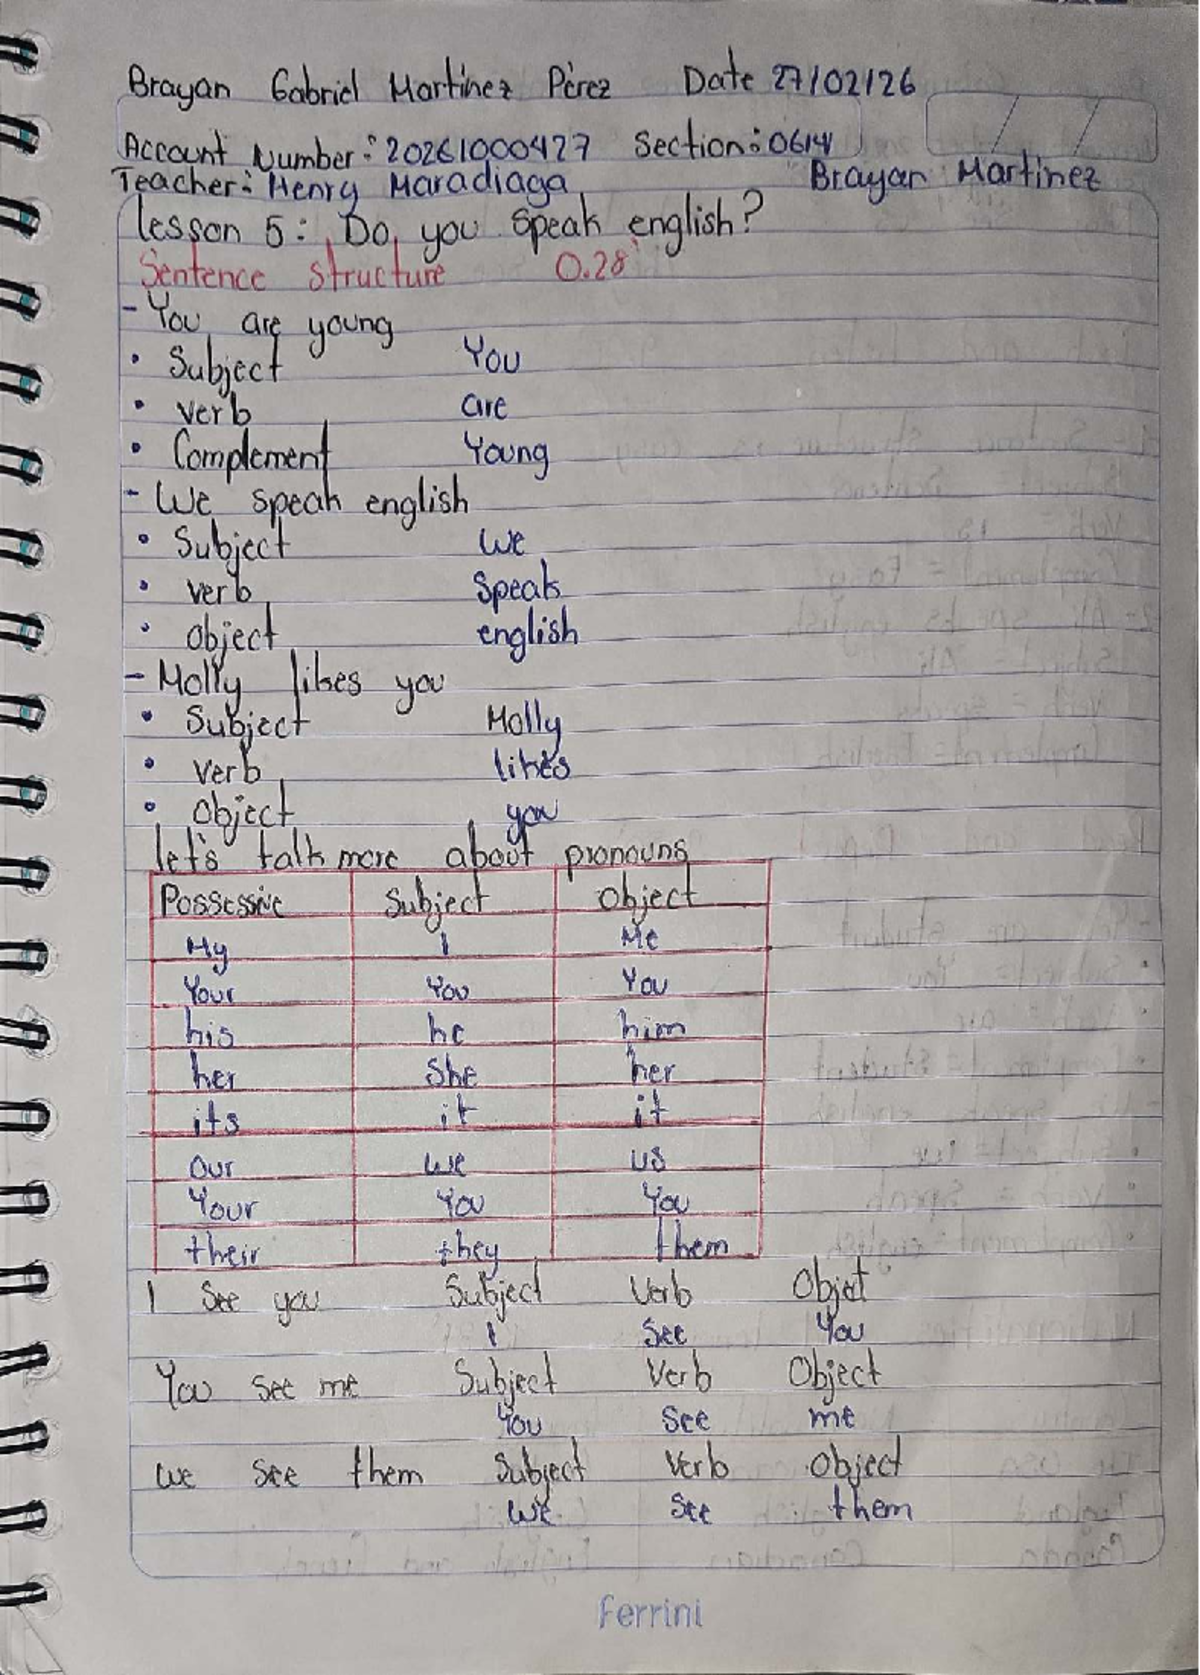 Brayan Gabriel Martínez Pérez Date 27/02/26
Account Number: 20261000427 Section: 0614
Teacher: Henry Maradiaga Brayan Martinez
lesson 5: Do you speak english?
Sentence structure 0.28
- You are young
• Subject You
• verb are
• Complement Young
- We speak english
• Subject We
• verb Speak
• object english
- Molly likes you
• Subject Molly
• verb likes
• object you
let's talk more about pronouns
Possessive Subject Object
My I Me
Your You You
his he him
her She her
its it it
our we us
Your You You
their they them
I See you Subject Verb Objet
I See You
You see me Subject Verb Object
You See me
we see them Subject Verb Object
We See them
Ferrini